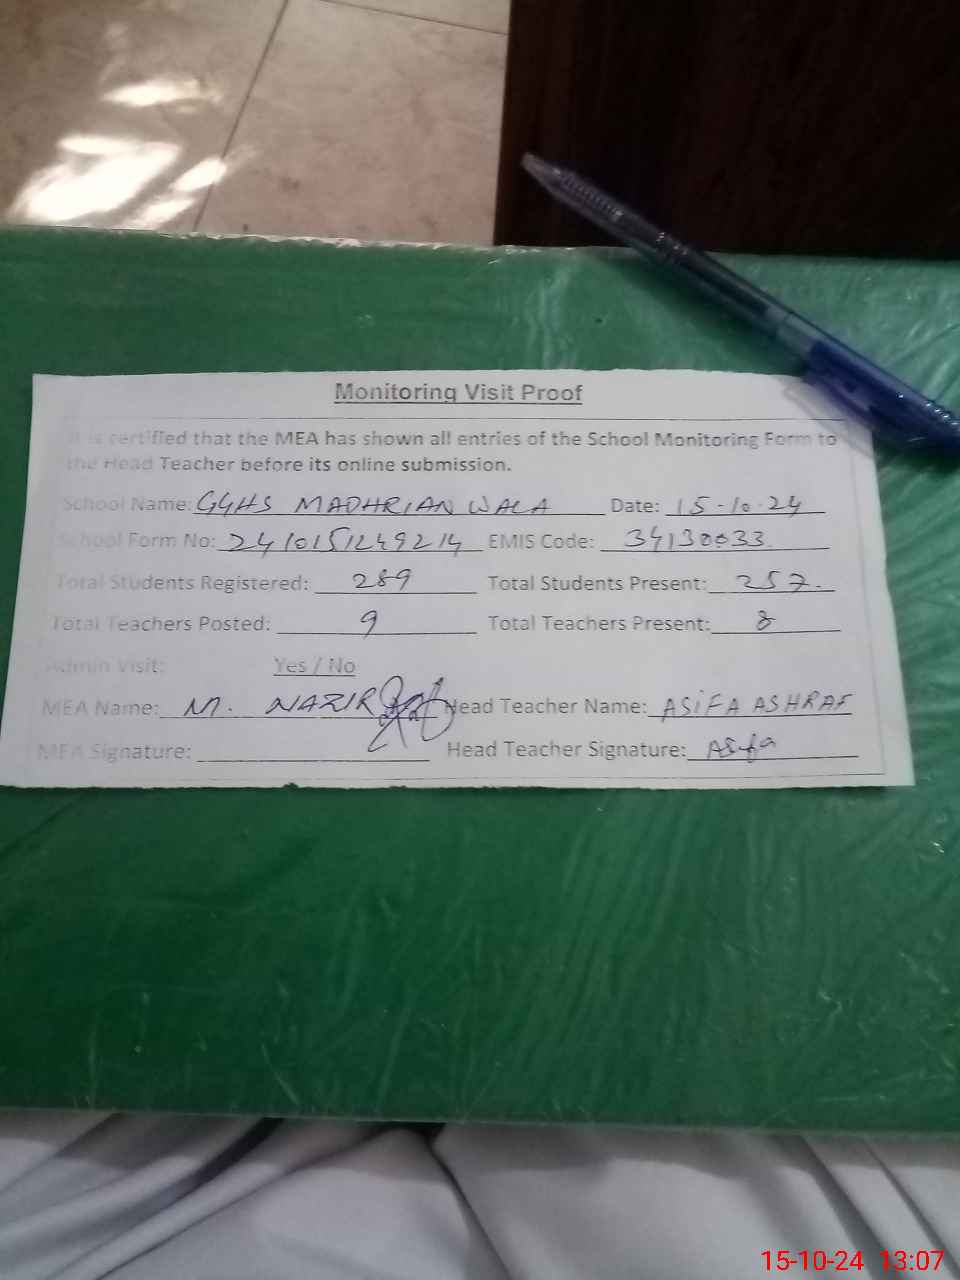 Monitoring Visit Proof
It is certified that the MEA has shown all entries of the School Monitoring Form to
the Head Teacher before its online submission.
School Name: GGHS MADHRIAN WALA Date: 15-10-24
School Form No: 2410151249214 EMIS Code: 34130033
Total Students Registered: 289 Total Students Present: 257.
Total Teachers Posted: 9 Total Teachers Present: 8
Admin Visit: Yes / No
MEA Name: M. NAZIR Head Teacher Name: ASIFA ASHRAF
MEA Signature: Head Teacher Signature: Asifa
15-10-24 13:07